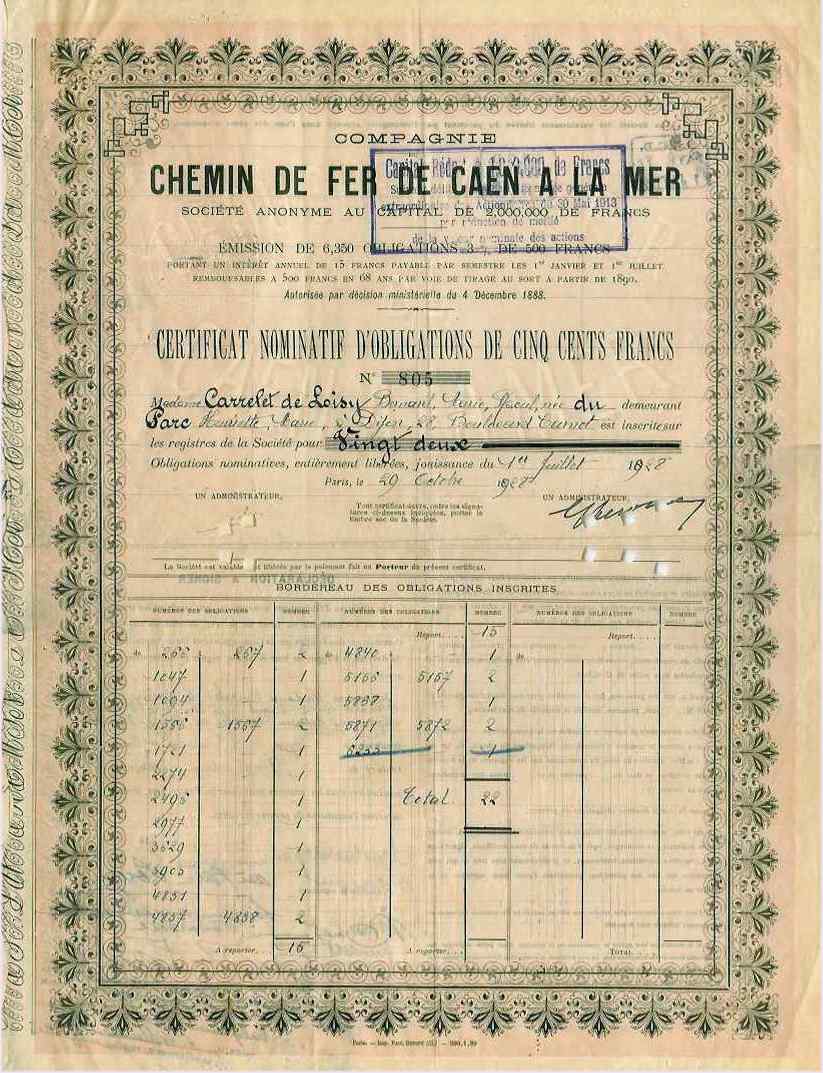 COMPAGNIE
CHEMIN DE FER DE CAEN A LA MER
SOCIÉTÉ ANONYME AU CAPITAL DE 2,000,000 DE FRANCS
Capital Réd de Francs
extraordinaire des Actionnaires du 30 Mai 1913
par réduction de moitié
de la nominale des actions
ÉMISSION DE 6,350 OBLIGATIONS 3% DE 500 FRANCS
PORTANT UN INTÉRÊT ANNUEL DE 15 FRANCS PAYABLE PAR SEMESTRE LES 1er JANVIER ET 1er JUILLET
REMBOURSABLES A 500 FRANCS EN 68 ANS PAR VOIE DE TIRAGE AU SORT A PARTIR DE 1890.
Autorisée par décision ministérielle du 4 Décembre 1888.
CERTIFICAT NOMINATIF D'OBLIGATIONS DE CINQ CENTS FRANCS
N° 805
Madame Carrelet de Loisy Marie, née du demeurant
Parc Henriette, Marie, à Dijon, 28 Boulevard Carnot est inscrite sur
les registres de la Société pour Vingt deux
Obligations nominatives, entièrement libérées, jouissance du 1er Juillet 1928
Paris, le 29 Octobre 1928
UN ADMINISTRATEUR,
Tout certificat devra, outre les signatures ci-dessus indiquées, porter le timbre sec de la Société.
UN ADMINISTRATEUR,
La Société est valablement libérée par le paiement fait au Porteur du présent certificat.
DÉCLARATION A SIGNER
BORDEREAU DES OBLIGATIONS INSCRITES
NUMÉROS DES OBLIGATIONS NOMBRE NUMÉROS DES OBLIGATIONS NOMBRE NUMÉROS DES OBLIGATIONS NOMBRE
Report.... 15 Report.....
de 266 267 2 de 4840 1 de
1047 1 5166 5167 2
1094 1 1
1566 1567 2 5871 5872 2
1721 1 6233 1
2274 1
2496 1 Total 22
2977 1
3629 1
3905 1
4831 1
4837 4838 2
A reporter. A reporter.... Total.....